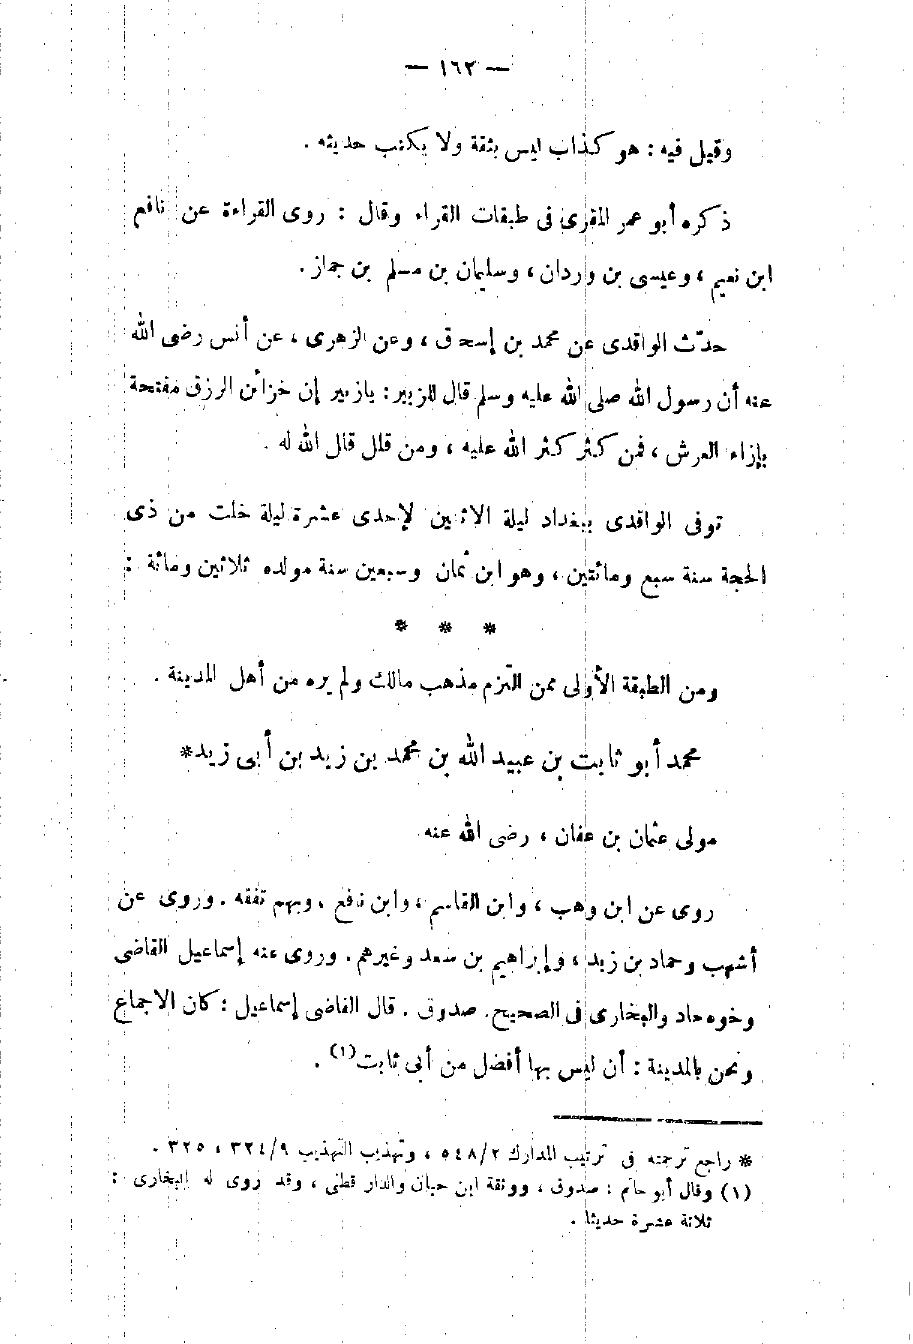 — ١٦٢ —
وقيل فيه : هو كذاب ليس بثقة ولا يكتب حديثه .
ذكره أبو عمر المقرى فى طبقات القراء وقال : روى القراءة عن نافع
ابن نعيم ، وعيسى بن وردان ، وسليمان بن مسلم بن جماز .
حدّث الواقدى عن محمد بن إسحق ، وعن الزهرى ، عن أنس رضى الله
عنه أن رسول الله صلى الله عليه وسلم قال للزبير : يازبير إن خزائن الرزق مفتحة
بإزاء العرش ، فمن كثر كثر الله عليه ، ومن قلل قال الله له .
توفى الواقدى ببغداد ليلة الاثنين لإحدى عشرة ليلة خلت من ذى
الحجة سنة سبع ومائتين ، وهو ابن ثمان وسبعين سنة مولده ثلاثين ومائة :
* * *
ومن الطبقة الأولى ممن التزم مذهب مالك ولم يره من أهل المدينة .
محمد أبو ثابت بن عبيد الله بن محمد بن زيد بن أبى زيد*
مولى عثمان بن عفان ، رضى الله عنه
روى عن ابن وهب ، وابن القاسم ، وابن نافع . وبهم تفقه . وروى عن
أشهب وحماد بن زيد ، وإبراهيم بن سعد وغيرهم . وروى عنه إسماعيل القاضى
وخوه حاد والبخارى فى الصحيح . صدوق . قال القاضى إسماعيل : كان الاجماع
ونحن بالمدينة : أن ليس بها أفضل من أبى ثابت(١) .
* راجع ترجمته فى ترتيب المدارك ٥٤٨/٢ ، وتهذيب التهذيب ٣٢٤/٩ ، ٣٢٥ .
(١) وقال أبو حاتم : صدوق ، ووثقة ابن حبان والدار قطنى ، وقد روى له البخارى :
ثلاثة عشرة حديثا .